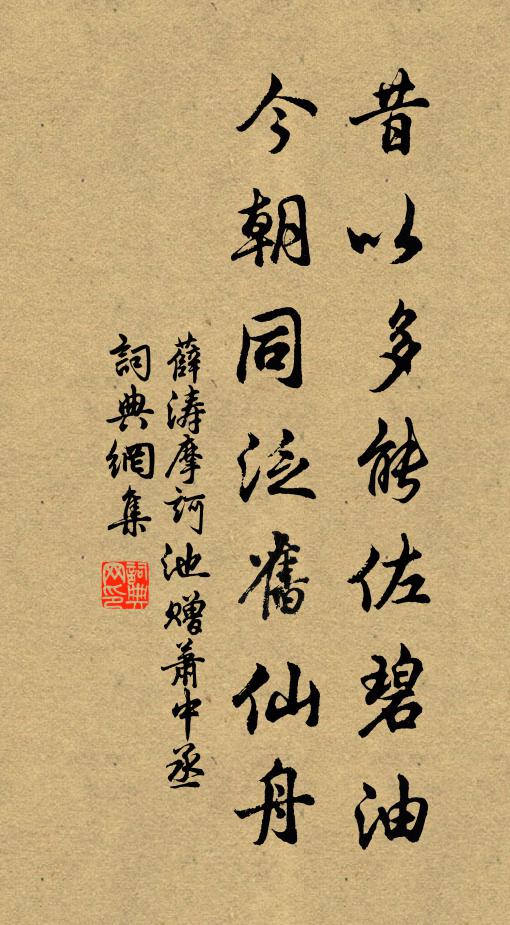 昔以多能佐碧油
今朝同泛舊仙舟
薛濤摩訶池贈蕭中丞
詞典網集
詞典網印